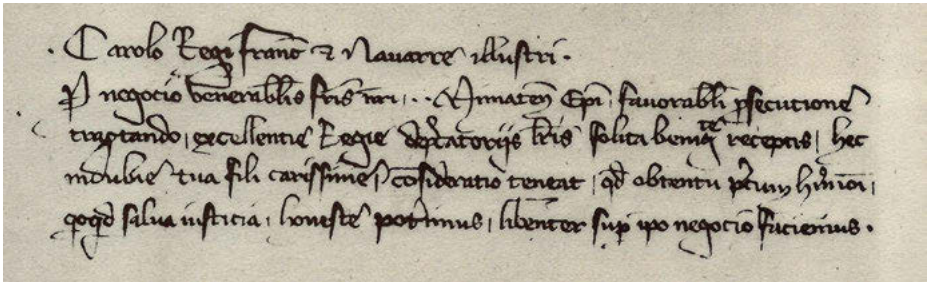 · Carolo Regi Franc̄ ⁊ Navarre illustri ·
P negocio venerabil̄is fr̄is nr̄i, ·· Epī, favorabil̄i p̄secutione
tractando, excellentie Regie dep̄catoriis lr̄is solita beniḡte receptis, hec
indubie tua fili carissime, consideratio teneat, qd̄ obtentu p̄cum hm̄oi,
q̄cqd̄ salva iusticia, honeste pot̄imus, libenter sup̄ ip̄o negocio faciemus ·